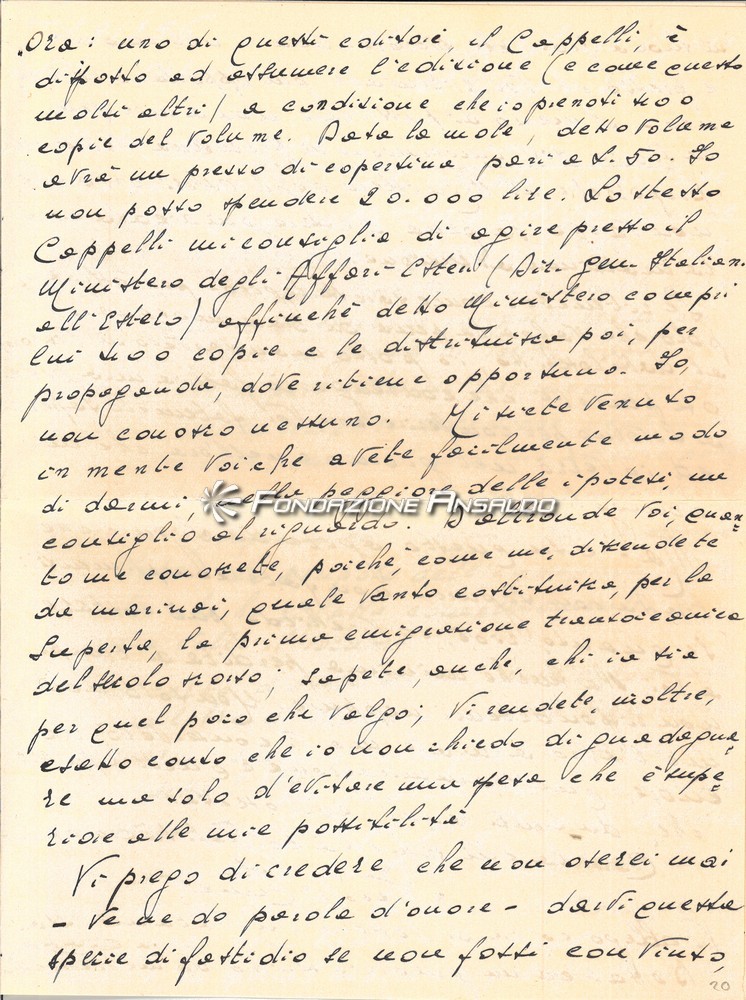 „Ora: uno di questi editori, il Cappelli, è
disposto ad assumere l'edizione (e come questo
molti altri) a condizione che io prenoti 400
copie del volume. Data la mole, detto volume
avrà un prezzo di copertina pari a L. 50. Io
non posso spendere 20.000 lire. Lo stesso
Cappelli mi consiglia di agire presso il
Ministero degli Affari Esteri (Dir. gen. Italian.
all'Estero) affinchè detto Ministero compri
lui 400 copie e le distribuisca poi, per
propaganda, dove ritiene opportuno. Io,
non conosco nessuno. Mi siete venuto
in mente Voi che avete facilmente modo
di darmi, nella peggiore delle ipotesi, un
FONDAZIONE ANSALDO
consiglio al riguardo. D'altronde Voi, quan=
to me conoscete, poiché, come me, discendete
da marinai, quale vanto costituisca, per la
Superba, la prima emigrazione transoceanica
del secolo scorso; sapete, anche, chi io sia
per quel poco che valgo; Vi rendete, inoltre,
esatto conto che io non chiedo di guadagna=
re ma solo d'evitare una spesa che è supe=
riore alle mie possibilità
Vi prego di credere che non oserei mai
- Ve ne do parola d'onore - darVi questa
specie di fastidio se non fossi convinto,
20